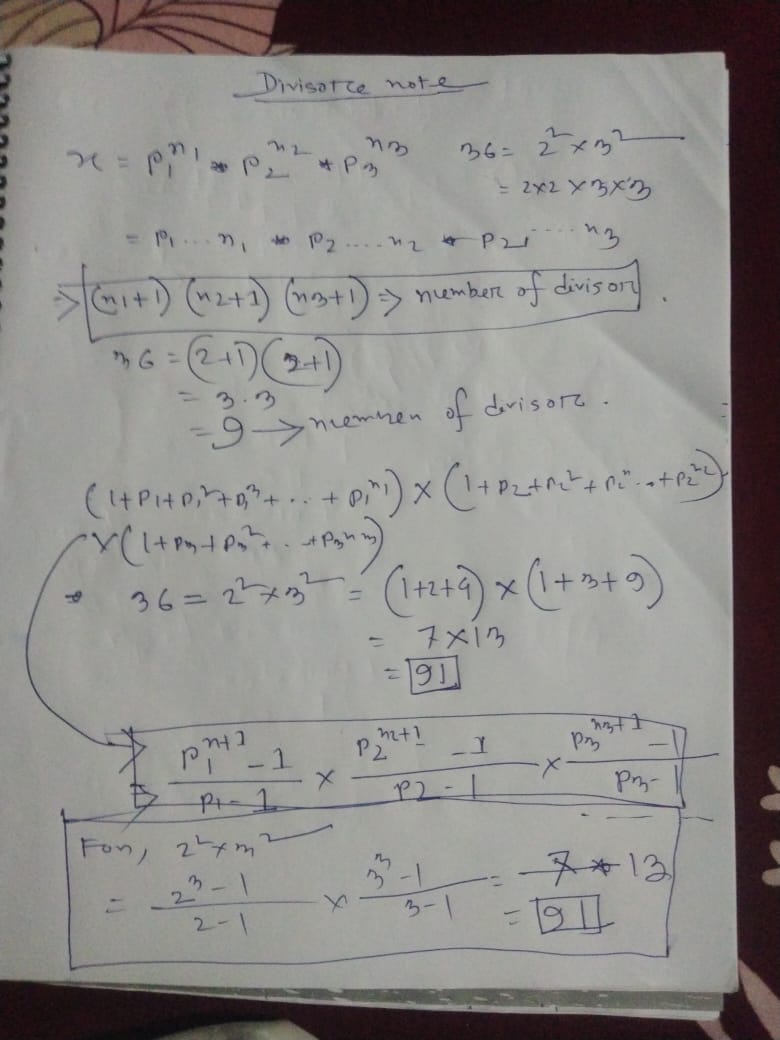 Divisorce note
x = p₁^n1 * p₂^n2 * p₃^n3
36 = 2² × 3²
= 2×2 × 3×3
= p₁ ... n₁ * p₂ .... n₂ * p₂ ..... n₃
⇒ (n1+1) (n2+1) (n3+1) ⇒ number of divisor.
36 = (2+1) (2+1)
= 3.3
= 9 → number of divisorc.
(1+p1+p₁²+p₁³+ . . . + p₁^n1) × (1+p2+p₂²+p₂^n...+p₂^n2)
×(1+p3+p₃²+ . . +p₃^n3)
36 = 2²×3² = (1+2+4) × (1+3+9)
= 7×13
= 91
(p₁^n+1 - 1)/(p1 - 1) × (p₂^n2+1 - 1)/(p2 - 1) × (p3^n3+1 - 1)/(p3 - 1)
For, 2²×3²
= (2³-1)/(2-1) × (3³-1)/(3-1) = 7 * 13
= 91